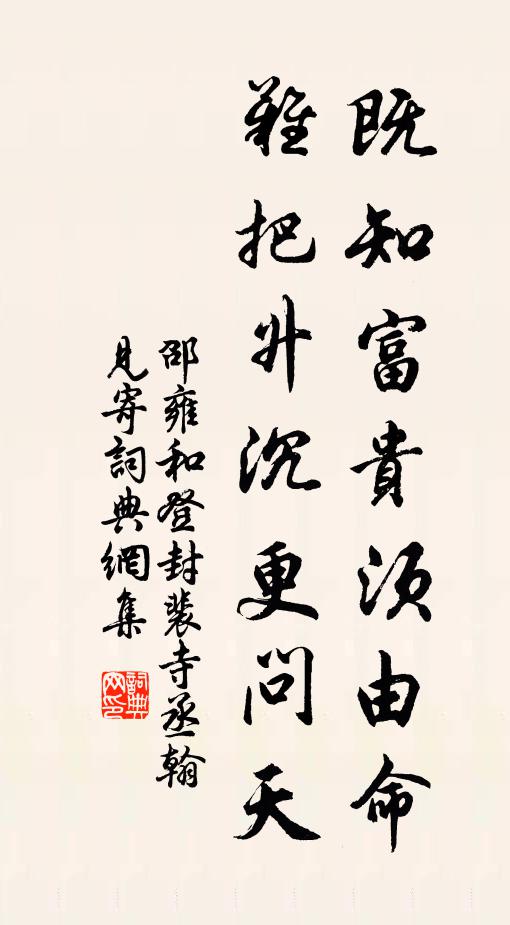 既知富貴須由命
難把升沉更問天
邵雍和登封裴寺丞翰
見寄詞典網集
詞典網印